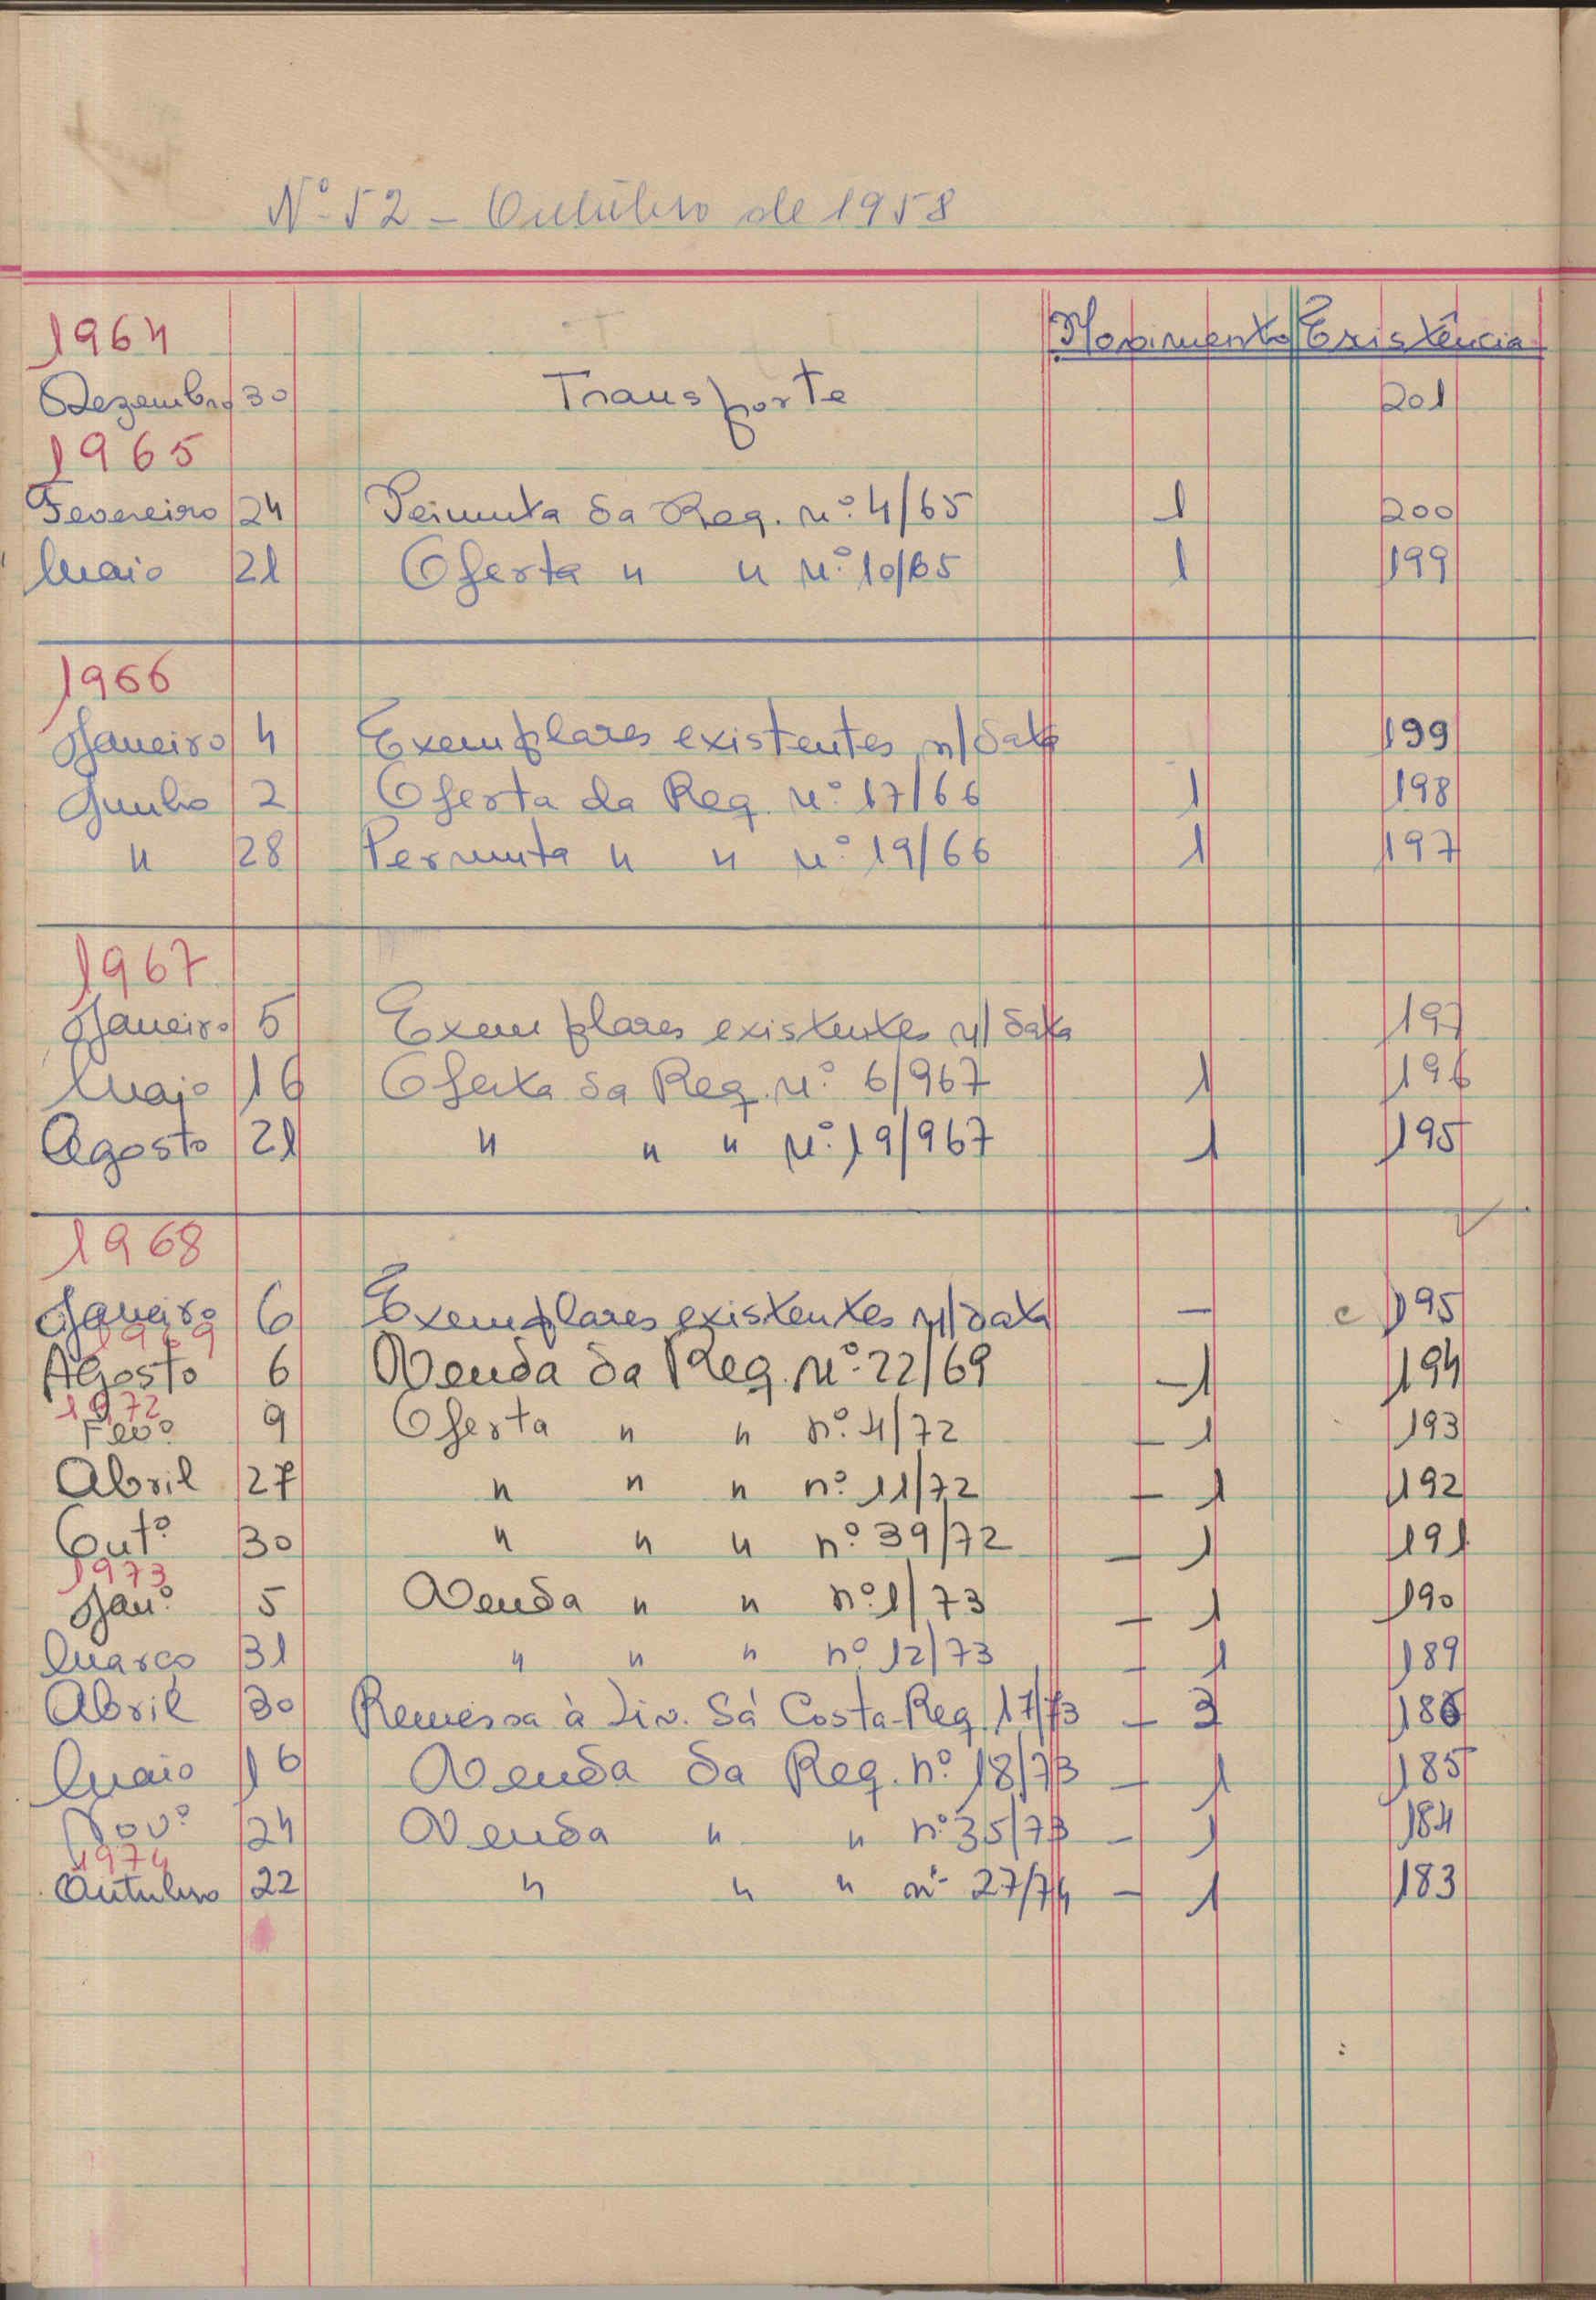 Nº 52 - Outubro de 1958
1964 Movimento Existência
Dezembro 30 Transporte 201
1965
Fevereiro 24 Permuta da Req. nº 4/65 1 200
Maio 21 Oferta " " nº 10/65 1 199
1966
Janeiro 4 Exemplares existentes n/data 199
Junho 2 Oferta da Req. nº 17/66 1 198
" 28 Permuta " " nº 19/66 1 197
1967
Janeiro 5 Exemplares existentes n/data 197
Maio 16 Oferta da Req. nº 6/967 1 196
Agosto 21 " " " nº 19/967 1 195
1968
Janeiro 6 Exemplares existentes n/data - 195
1969
Agosto 6 Venda da Req. nº 22/69 - 1 194
1972
Fevº 9 Oferta " " nº 4/72 - 1 193
Abril 27 " " " nº 11/72 - 1 192
Outº 30 " " " nº 39/72 - 1 191
1973
Janº 5 Venda " " nº 1/73 - 1 190
Março 31 " " " nº 12/73 - 1 189
Abril 30 Remessa à Liv. Sá Costa - Req. 17/73 - 3 186
Maio 16 Venda da Req. nº 18/73 - 1 185
Novº 24 Venda " " nº 35/73 - 1 184
1974
Outubro 22 " " " nº 27/74 - 1 183